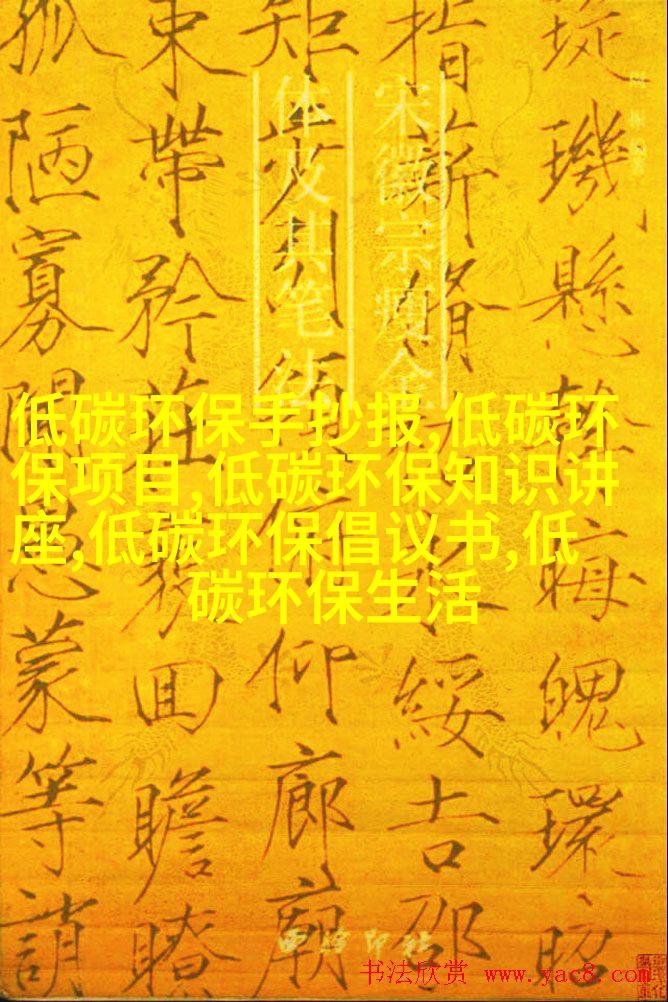 璇璣懸斡晦魄環照
指薪修祜永綏吉劭
矩步引領俯仰廊廟
束帶矜莊徘徊瞻眺
孤陋寡聞愚蒙等誚
宋徽宗瘦金
体及其笔法
低碳环保手抄报,低碳环
保项目,低碳环保知识讲
座,低碳环保倡议书,低
碳环保生活
西泠印社
书法欣赏 www.yac8.com